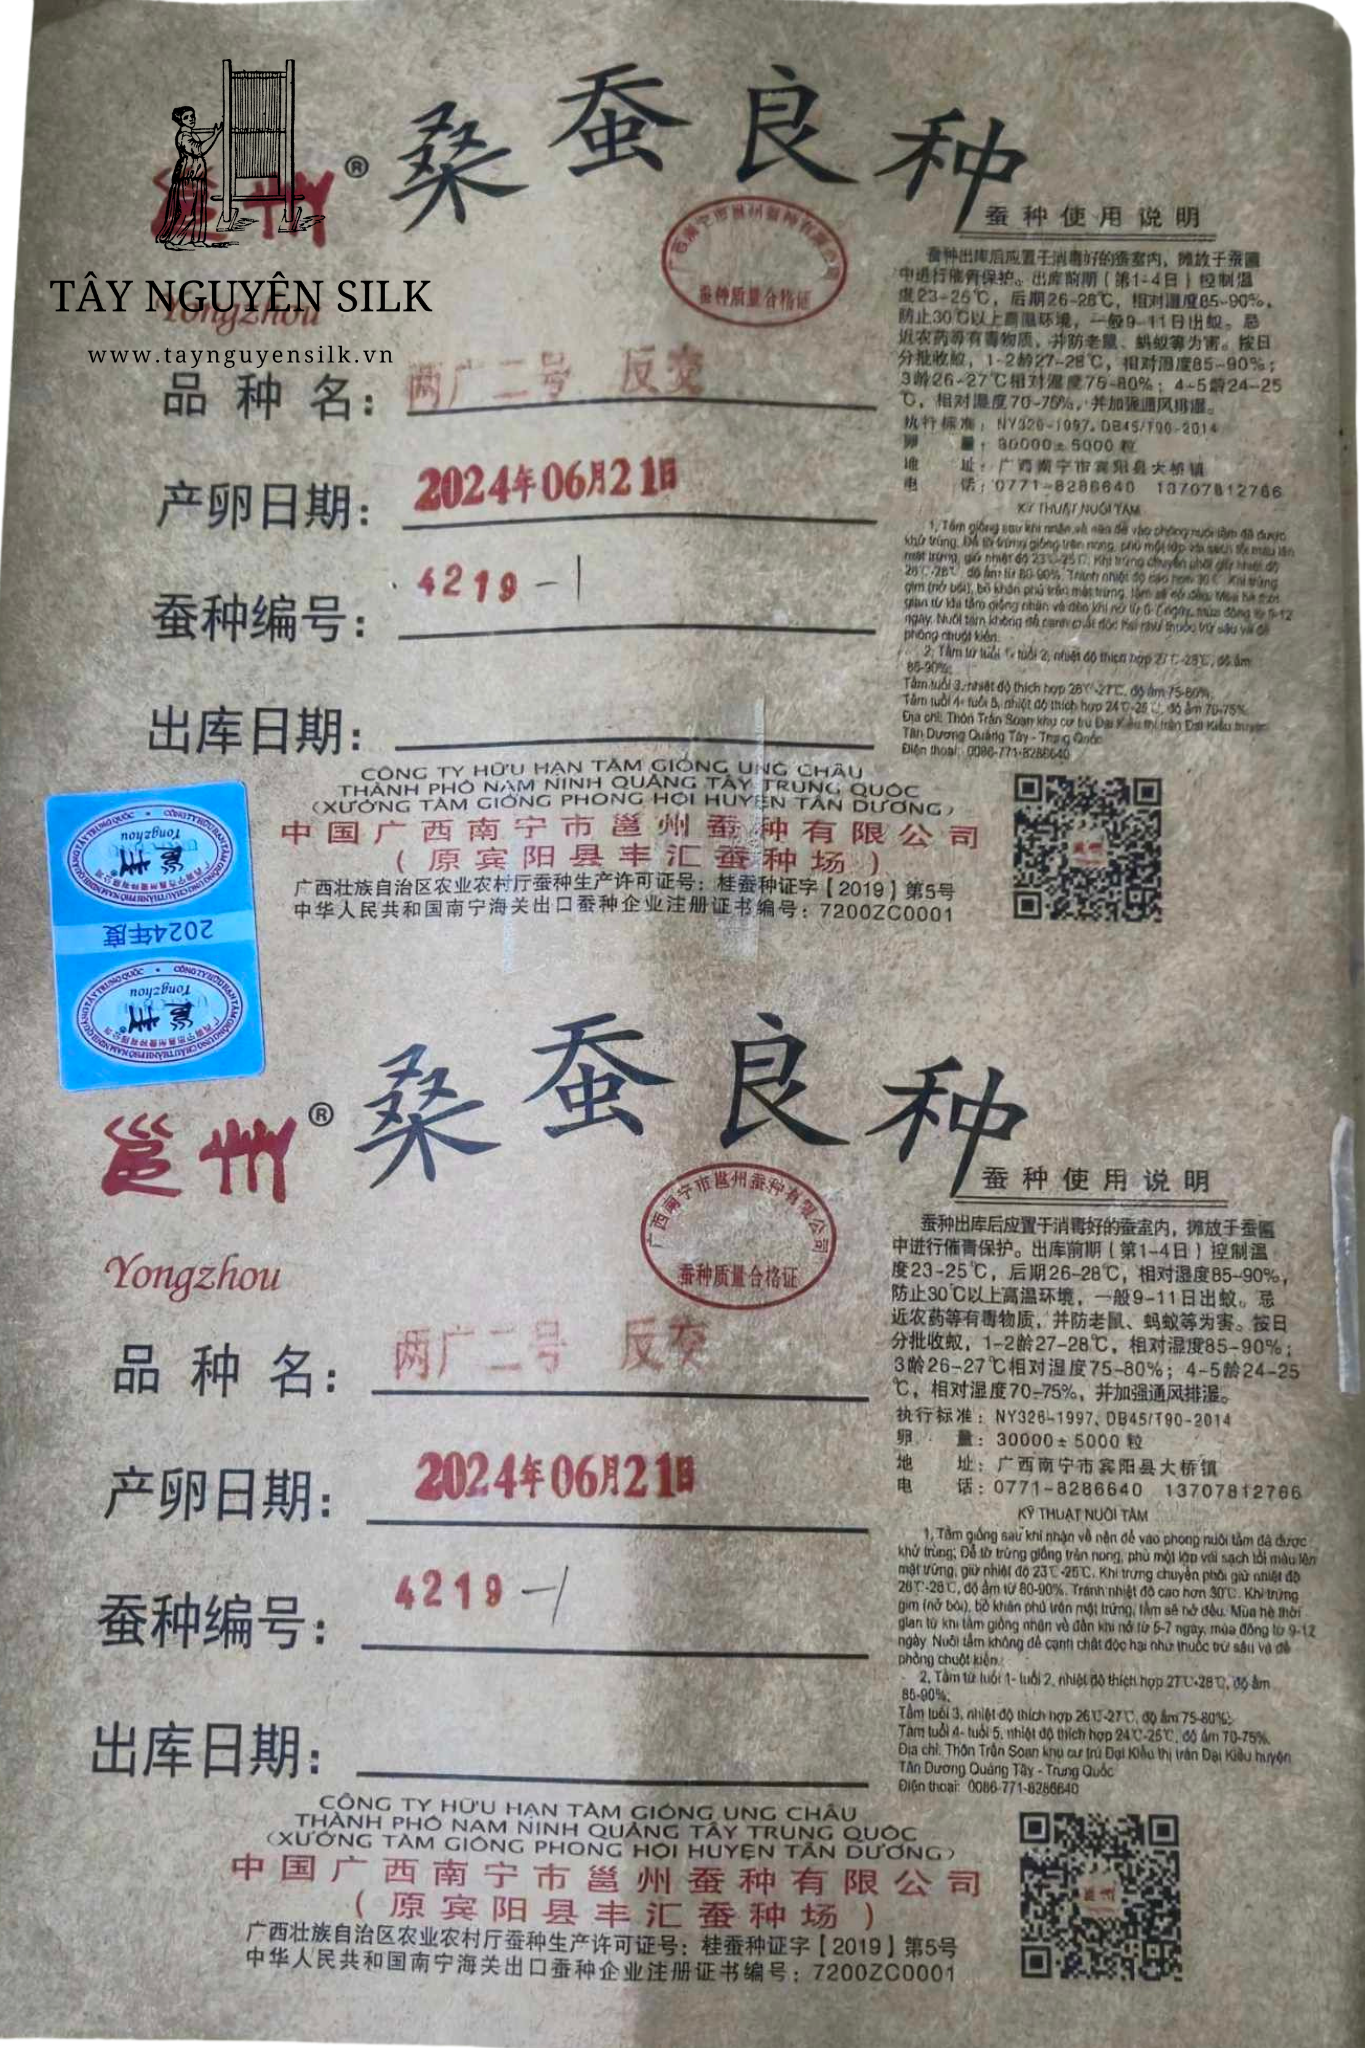 TÂY NGUYÊN SILK
www.taynguyensilk.vn
®
桑蚕良种
广西南宁市邕州蚕种有限公司
蚕种质量合格证
Yongzhou
品种名：两广二号 反交
产卵日期：2024年06月21日
蚕种编号：4219-1
出库日期：
蚕种使用说明
蚕种出库后应置于消毒好的蚕室内，摊放于蚕匾
中进行催青保护。出库前期（第1-4日）控制温
度23-25℃，后期26-28℃，相对湿度85-90%，
防止30℃以上高温环境，一般9-11日出蚁。忌
近农药等有毒物质，并防老鼠、蚂蚁等为害。按日
分批收蚁，1-2龄27-28℃，相对湿度85-90%；
3龄26-27℃相对湿度75-80%；4-5龄24-25
℃，相对湿度70-75%，并加强通风排湿。
执行标准：NY326-1997、DB45/T90-2014
卵 量：30000±5000粒
地 址：广西南宁市宾阳县大桥镇
电 话：0771-8286640 13707812766
KỸ THUẬT NUÔI TẰM
1, Tằm giống sau khi nhận về nên để vào phòng nuôi tằm đã được
khử trùng; Để tờ trứng giống trên nong, phủ một lớp vải sạch tối màu lên
mặt trứng, giữ nhiệt độ 23℃-25℃. Khi trứng chuyển phôi giữ nhiệt độ
26℃-28℃, độ ẩm từ 80-90%. Tránh nhiệt độ cao hơn 30℃. Khi trứng
gim (nở bói), bỏ khăn phủ trên mặt trứng, tằm sẽ nở đều. Mùa hè thời
gian từ khi tằm giống nhận về đến khi nở từ 5-7 ngày, mùa đông từ 9-12
ngày. Nuôi tằm không để cạnh chất độc hại như thuốc trừ sâu và đề
phòng chuột kiến.
2, Tằm từ tuổi 1- tuổi 2, nhiệt độ thích hợp 27℃-28℃, độ ẩm
85-90%;
Tằm tuổi 3, nhiệt độ thích hợp 26℃-27℃, độ ẩm 75-80%;
Tằm tuổi 4- tuổi 5, nhiệt độ thích hợp 24℃-25℃, độ ẩm 70-75%.
Địa chỉ: Thôn Trần Soạn khu cư trú Đại Kiều thị trấn Đại Kiều huyện
Tân Dương Quảng Tây - Trung Quốc
Điện thoại: 0086-771-8286640
CÔNG TY HỮU HẠN TẰM GIỐNG UNG CHÂU
THÀNH PHỐ NAM NINH QUẢNG TÂY TRUNG QUỐC
(XƯỞNG TẰM GIỐNG PHONG HỘI HUYỆN TÂN DƯƠNG)
中国广西南宁市邕州蚕种有限公司
（原宾阳县丰汇蚕种场）
广西壮族自治区农业农村厅蚕种生产许可证号：桂蚕种证字【2019】第5号
中华人民共和国南宁海关出口蚕种企业注册证书编号：7200ZC0001
邕州
Yongzhou
2024年度
邕州
Yongzhou
邕州®
桑蚕良种
广西南宁市邕州蚕种有限公司
蚕种质量合格证
Yongzhou
品种名：两广二号 反交
产卵日期：2024年06月21日
蚕种编号：4219-1
出库日期：
蚕种使用说明
蚕种出库后应置于消毒好的蚕室内，摊放于蚕匾
中进行催青保护。出库前期（第1-4日）控制温
度23-25℃，后期26-28℃，相对湿度85-90%，
防止30℃以上高温环境，一般9-11日出蚁。忌
近农药等有毒物质，并防老鼠、蚂蚁等为害。按日
分批收蚁，1-2龄27-28℃，相对湿度85-90%；
3龄26-27℃相对湿度75-80%；4-5龄24-25
℃，相对湿度70-75%，并加强通风排湿。
执行标准：NY326-1997、DB45/T90-2014
卵 量：30000±5000粒
地 址：广西南宁市宾阳县大桥镇
电 话：0771-8286640 13707812766
KỸ THUẬT NUÔI TẰM
1, Tằm giống sau khi nhận về nên để vào phòng nuôi tằm đã được
khử trùng; Để tờ trứng giống trên nong, phủ một lớp vải sạch tối màu lên
mặt trứng, giữ nhiệt độ 23℃-25℃. Khi trứng chuyển phôi giữ nhiệt độ
26℃-28℃, độ ẩm từ 80-90%. Tránh nhiệt độ cao hơn 30℃. Khi trứng
gim (nở bói), bỏ khăn phủ trên mặt trứng, tằm sẽ nở đều. Mùa hè thời
gian từ khi tằm giống nhận về đến khi nở từ 5-7 ngày, mùa đông từ 9-12
ngày. Nuôi tằm không để cạnh chất độc hại như thuốc trừ sâu và đề
phòng chuột kiến.
2, Tằm từ tuổi 1- tuổi 2, nhiệt độ thích hợp 27℃-28℃, độ ẩm
85-90%;
Tằm tuổi 3, nhiệt độ thích hợp 26℃-27℃, độ ẩm 75-80%;
Tằm tuổi 4- tuổi 5, nhiệt độ thích hợp 24℃-25℃, độ ẩm 70-75%.
Địa chỉ: Thôn Trần Soạn khu cư trú Đại Kiều thị trấn Đại Kiều huyện
Tân Dương Quảng Tây - Trung Quốc
Điện thoại: 0086-771-8286640
CÔNG TY HỮU HẠN TẰM GIỐNG UNG CHÂU
THÀNH PHỐ NAM NINH QUẢNG TÂY TRUNG QUỐC
(XƯỞNG TẰM GIỐNG PHONG HỘI HUYỆN TÂN DƯƠNG)
中国广西南宁市邕州蚕种有限公司
（原宾阳县丰汇蚕种场）
广西壮族自治区农业农村厅蚕种生产许可证号：桂蚕种证字【2019】第5号
中华人民共和国南宁海关出口蚕种企业注册证书编号：7200ZC0001